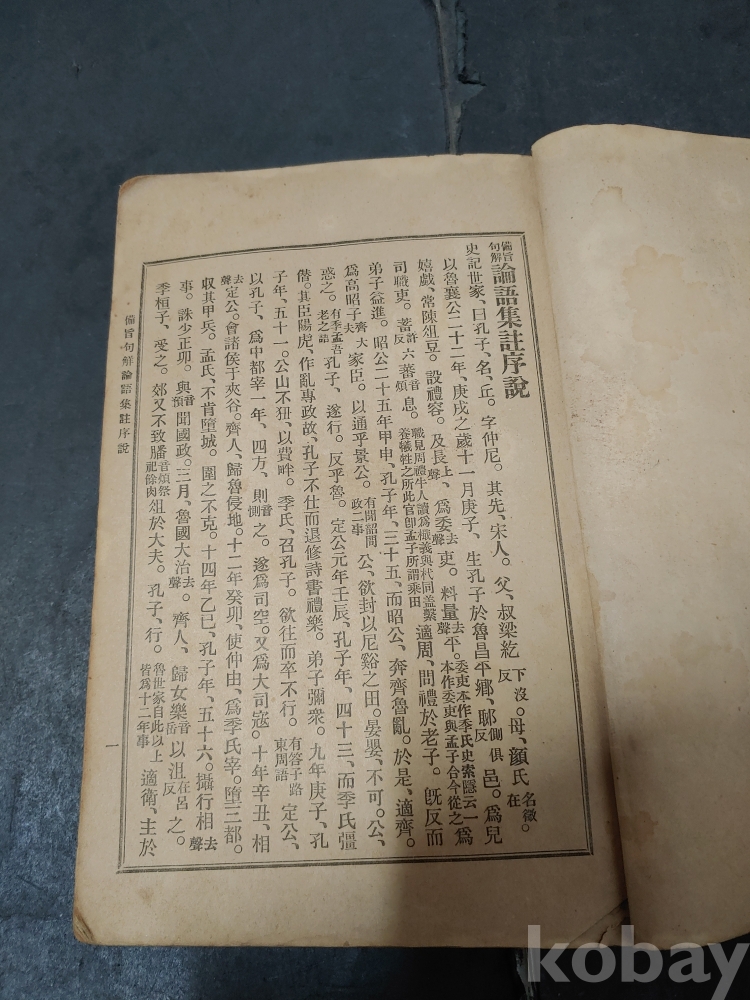 備旨句解 論語集註序說
史記世家、曰孔子、名、丘。字仲尼。其先、宋人。父、叔梁紇下沒反。母、顏氏名徵在。
以魯襄公二十二年、庚戌之歲十一月庚子、生孔子於魯昌平鄉、郰側俱反邑。爲兒
嬉戲、常陳俎豆。設禮容。及長上聲、爲委去聲吏。料量去聲平。委吏本作季氏史索隱云一本作委吏與孟子合今從之爲
司職吏。畜許六反蕃音煩息。職見周禮牛人讀爲樴義與杙同盖繫養犧牲之所此官卽孟子所謂乘田適周、問禮於老子。旣反而
弟子益進。昭公二十五年甲申、孔子年、三十五、而昭公、奔齊魯亂。於是、適齊。
爲高昭子齊大夫家臣。以通乎景公。有聞韶問政二事公、欲封以尼谿之田。晏嬰、不可。公、
惑之。有季孟吾老之語孔子、遂行。反乎魯。定公元年壬辰、孔子年、四十三、而季氏彊
僭。其臣陽虎、作亂專政故、孔子不仕而退修詩書禮樂。弟子彌衆。九年庚子、孔
子年、五十一。公山不狃、以費畔。季氏、召孔子。欲往而卒不行。有答子路東周語定公、
以孔子、爲中都宰一年、四方、則音惻之。遂爲司空。又爲大司寇。十年辛丑、相
去聲定公。會諸侯于夾谷。齊人、歸魯侵地。十二年癸卯、使仲由、爲季氏宰。墮三都。
収其甲兵。孟氏、不肯墮城。圍之不克。十四年乙巳、孔子年、五十六。攝行相去聲
事。誅少正卯。與音預聞國政。三月、魯國大治去聲。齊人、歸女樂音岳以沮在呂反之。
季桓子、受之。郊又不致膰音煩祭祀餘肉俎於大夫。孔子、行。魯世家自此以上皆爲十二年事適衛、主於
備旨句解論語集註序說
一
kobay